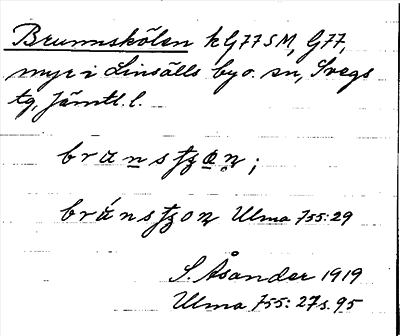 Brunnskölen k G77SM, G77,
myr i Linsälls by o. sn, Svegs
tg, Jämtl. l.
S. Åsander 1919
Ulma 755: 27 s. 95
Ulma 755:29